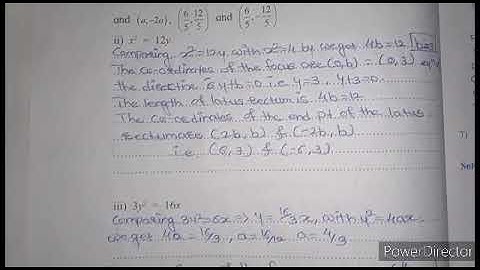 and (a,-2a), (6/5, 12/5) and (6/5, -12/5)
ii) x² = 12y
Comparing x²=12y with x²=4by we get 4b=12 b=3
The co-ordinates of the focus are (0,b) = (0,3)
the directrix is y+b=0 i.e y=3 y+3=0
The length of latus rectum is 4b=12
The co-ordinates of the end pt of the latus
rectum are (2b,b) & (-2b,b)
i.e, (6,3) & (-6,3)
7)
iii) 3y² = 16x
Comparing 3y²=16x ⇒ y²=16/3x, with y²=4ax
we get 4a=16/3, a=16/12 a=4/3
PowerDirector